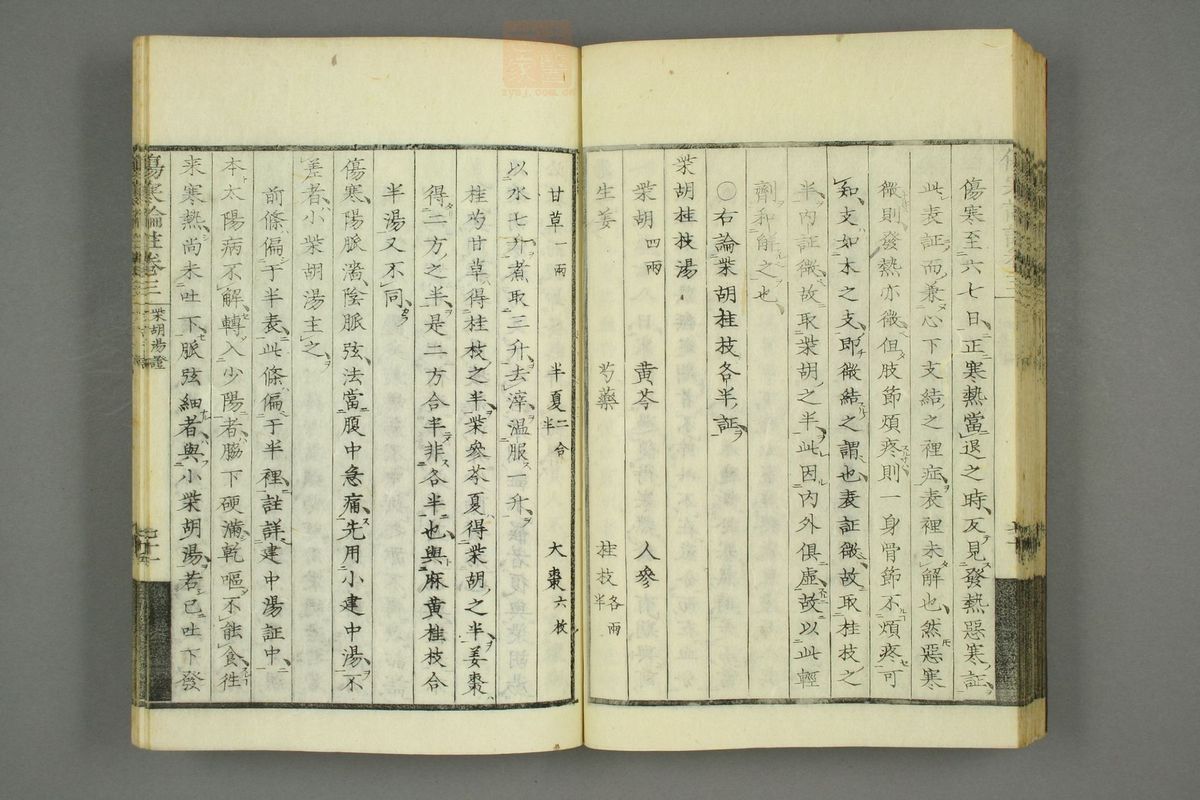 傷寒至六七日正寒熱當退之時反見發熱惡寒証
此表証而兼心下支結之裡症表裡未解也然惡寒
微則發熱亦微但肢節煩疼則一身骨節不煩疼可
知支如木之支即微結之謂也表証微故取桂枝之
半内証微故取柴胡之半此因内外俱虛故以此輕
劑和解之也
右論柴胡桂枝各半証
柴胡桂枝湯
柴胡四兩 黃芩 人參
生姜 芍藥 桂枝各兩半
甘草一兩 半夏二合半 大棗六枚
以水七升煮取三升去滓温服一升
桂芍甘草得桂枝之半柴參芩夏得柴胡之半姜棗
得二方之半是二方合半非各半也與麻黃桂枝合
半湯又不同
傷寒陽脈濇陰脈弦法當腹中急痛先用小建中湯不
差者小柴胡湯主之
前條偏于半表此條偏于半裡註詳建中湯証中
本太陽病不解轉入少陽者脇下硬滿乾嘔不能食徃
来寒熱尚未吐下脈弦細者與小柴胡湯若已吐下發
傷寒論註卷三
柴胡湯證